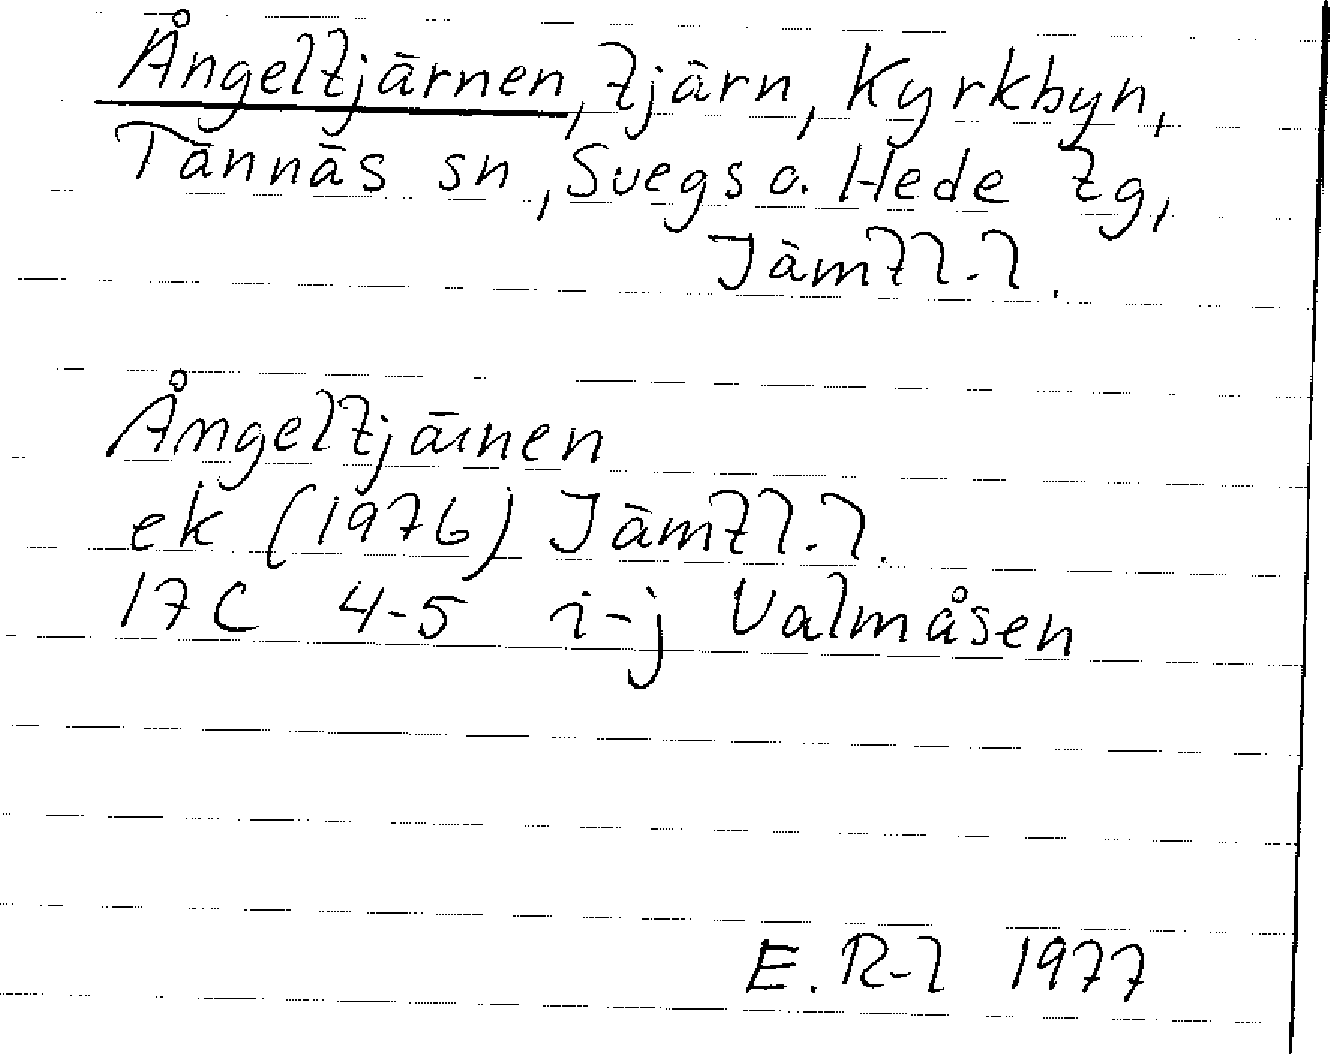 Ångeltjärnen, tjärn, Kyrkbyn,
Tännäs sn, Svegs o. Hede tg,
Jämtl.l.
Ångeltjärnen
ek (1976) Jämtl.l.
17C 4-5 i-j Valmåsen
E. R-l 1977